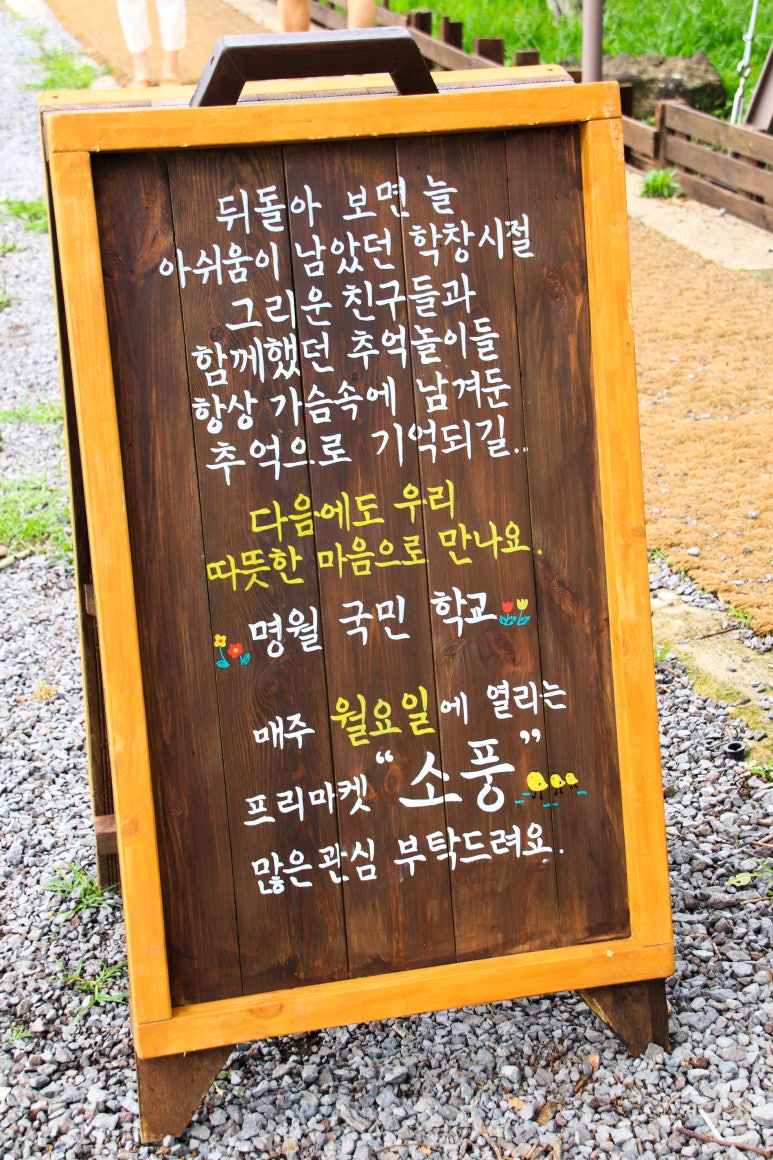 뒤돌아 보면 늘
아쉬움이 남았던 학창시절
그리운 친구들과
함께했던 추억놀이들
항상 가슴속에 남겨둔
추억으로 기억되길..
다음에도 우리
따뜻한 마음으로 만나요.
명월 국민 학교
매주 월요일에 열리는
프리마켓 “소풍”
많은관심 부탁드려요.